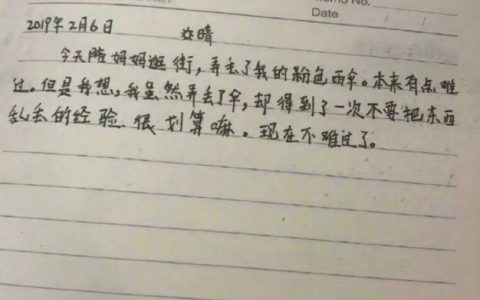 Memo No.
Date / /
2019年2月6日 晴
今天陪妈妈逛街，弄丢了我的粉色雨伞。本来有点难
过。但是我想，我虽然弄丢了伞，却得到了一次不要把东西
乱丢的经验 很划算嘛。现在不难过了。